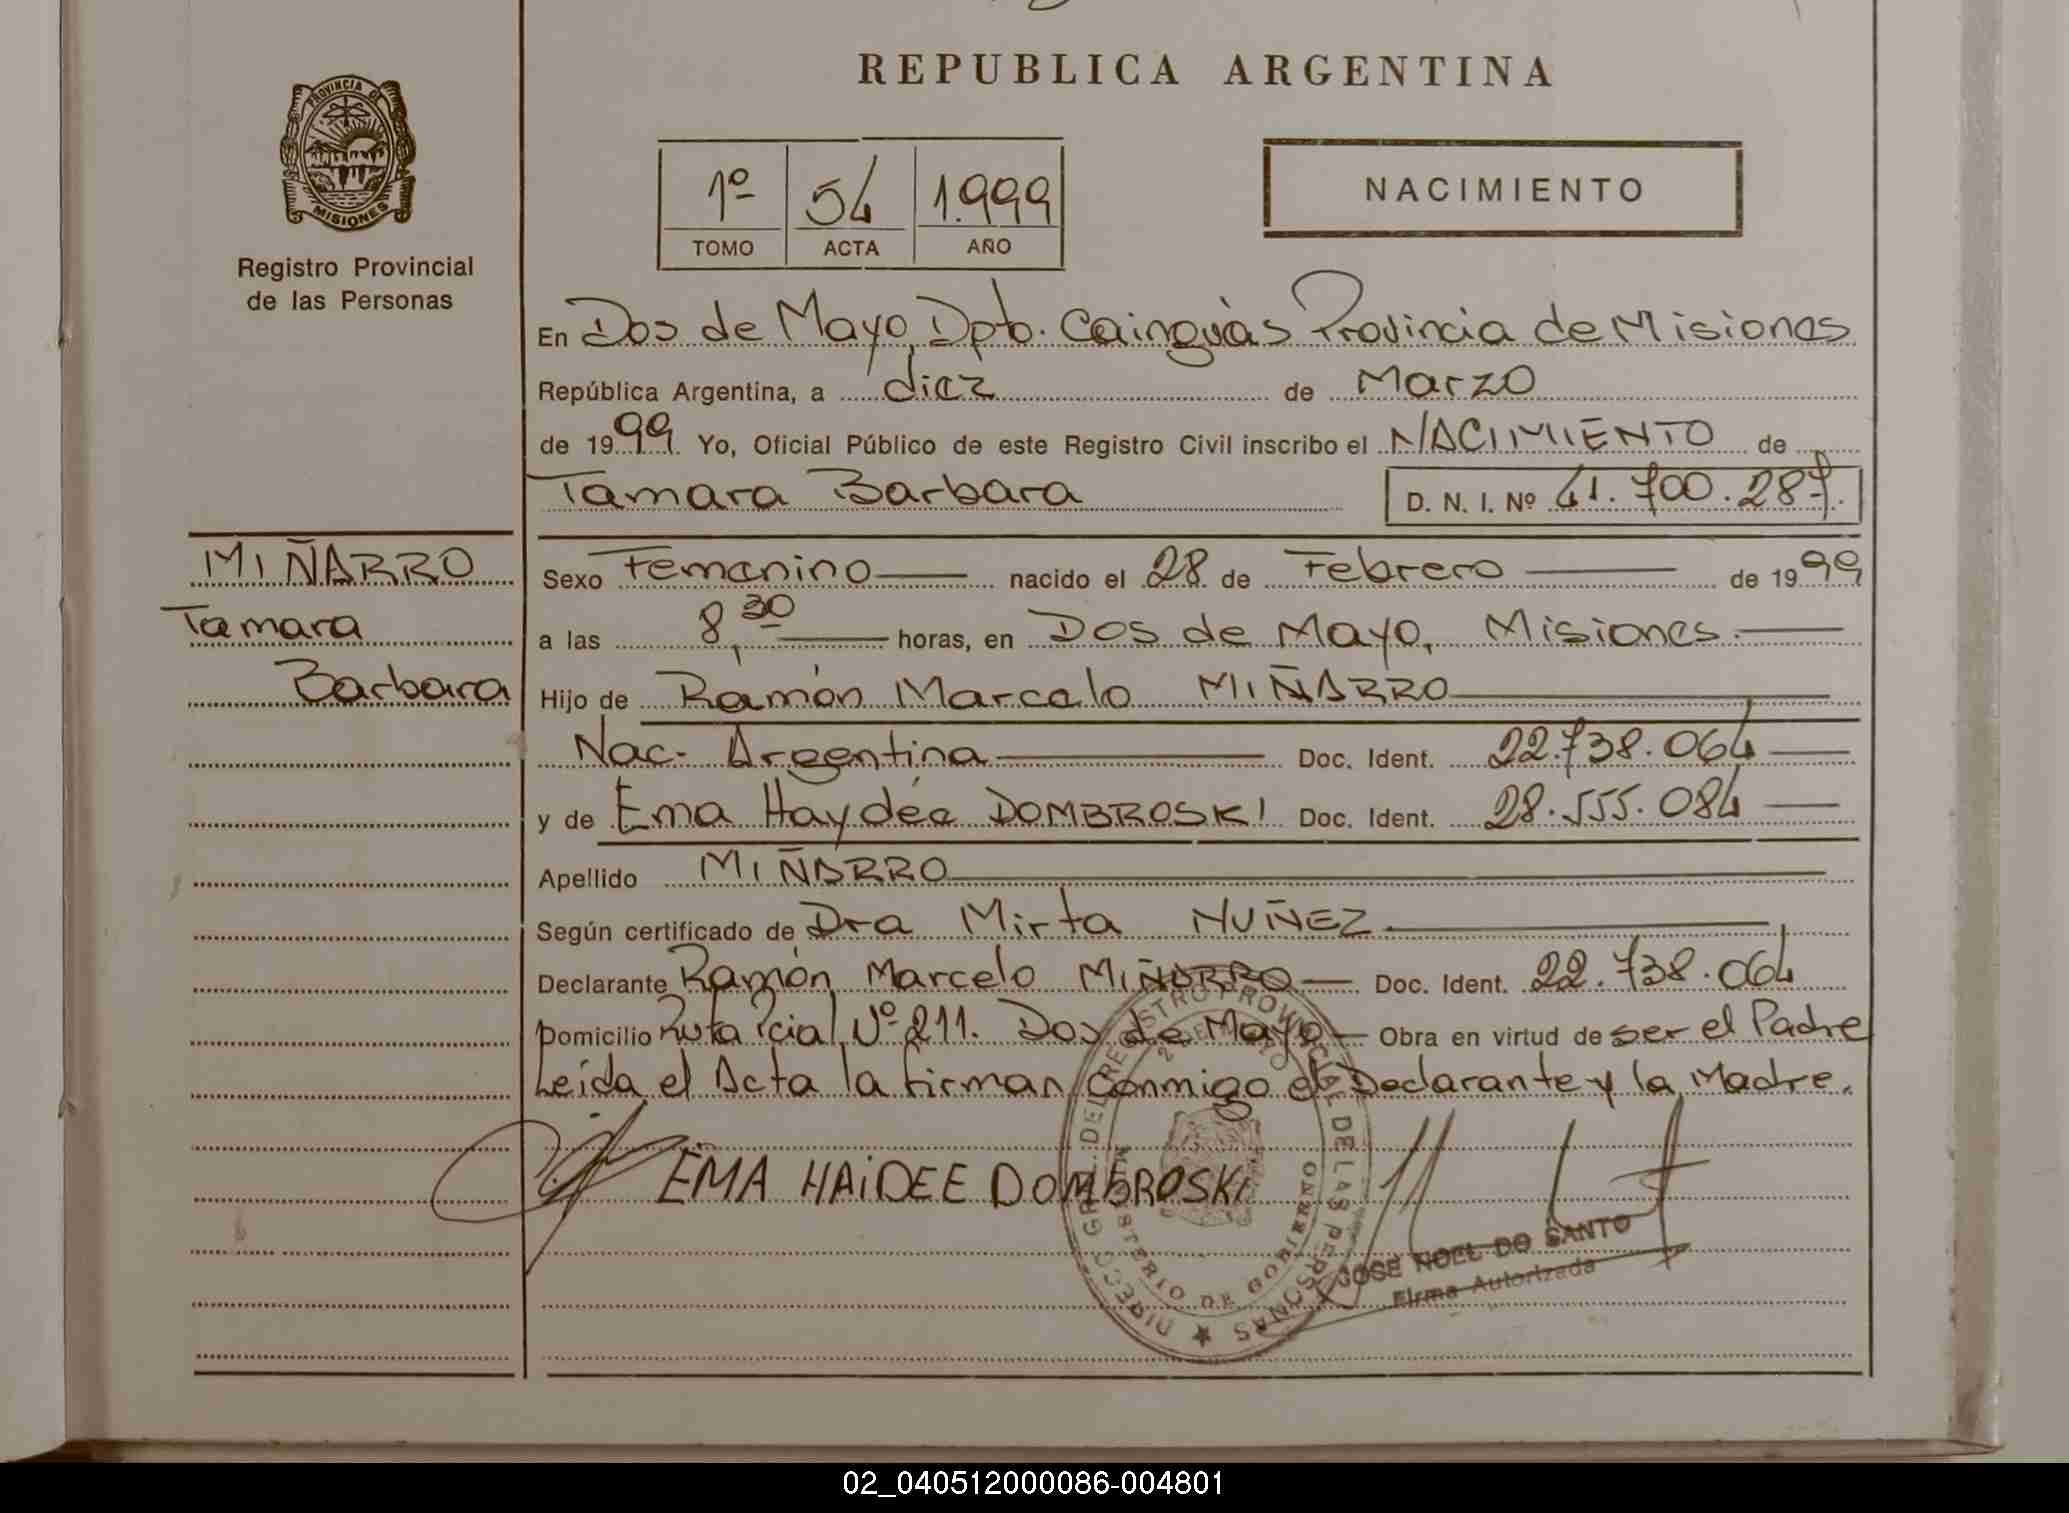 REPUBLICA ARGENTINA
PROVINCIA DE
MISIONES
Registro Provincial
de las Personas
1º 54 1.999
TOMO ACTA AÑO
NACIMIENTO
En Dos de Mayo, Dpto. Cainguàs Provincia de Misiones
República Argentina, a diez de Marzo
de 1999. Yo, Oficial Público de este Registro Civil inscribo el NACIMIENTO de
Tamara Barbara D. N. I. Nº 41.700.287.
MIÑARRO
Tamara
Barbara
Sexo Femenino nacido el 28 de Febrero de 1999
a las 8,30 horas, en Dos de Mayo, Misiones.
Hijo de Ramón Marcelo MIÑARRO
Nac- Argentina Doc. Ident. 22.738.064
y de Ema Haydée DOMBROSKI Doc. Ident. 28.555.084
Apellido MIÑARRO
Según certificado de Dra Mirta NUÑEZ
Declarante Ramón Marcelo MIÑARRO Doc. Ident. 22.738.064
Domicilio Ruta Pcial Nº 211. Dos de Mayo Obra en virtud de ser el Padre
Leída el Acta la firman conmigo el Declarante y la Madre.
EMA HAiDEE DOMBROSKi
DIRECC. GRAL. DEL REGISTRO PROVINCIAL DE LAS PERSONAS
2 DE MAYO
MINISTERIO DE GOBIERNO
JOSE NOEL DO SANTO
Firma Autorizada
02_040512000086-004801